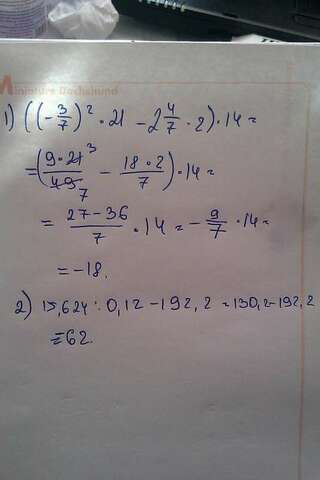 Miniature Dachshund
1) ((-3/7)² · 21 - 2 4/7 · 2) · 14 =
= (9 · 21 3/49 7 - 18 · 2/7) · 14 =
= 27 - 36/7 · 14 = - 9/7 · 14 =
= -18.
2) 15,624 : 0,12 - 192,2 = 130,2 - 192,2
= 62.